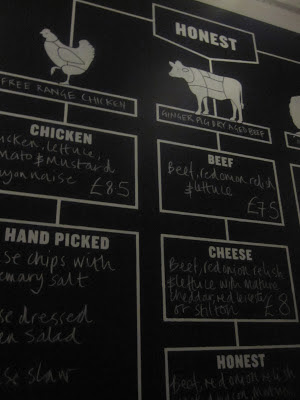 HONEST
FREE RANGE CHICKEN
GINGER PIG DRY AGED BEEF
CHICKEN
cken, lettuce,
mato & mustard
yonnaise
£8.5
BEEF
Beef, red onion relish
& lettuce
£7.5
HAND PICKED
se chips with
emary salt
se dressed
en salad
se slaw
CHEESE
Beef, red onion relish
& lettuce with mature
cheddar, red leicester
or stilton
£8
HONEST
Beef, red onion relish